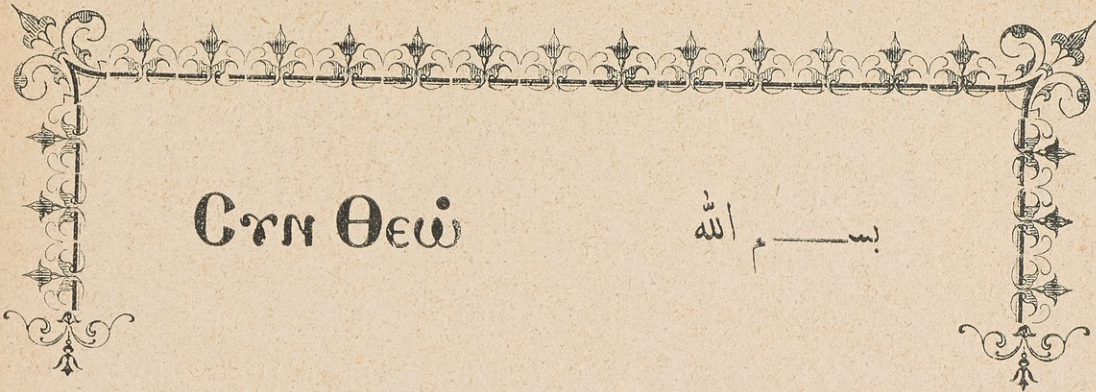 Ⲥⲩⲛ Ⲑⲉⲱ̇ بســـم الله